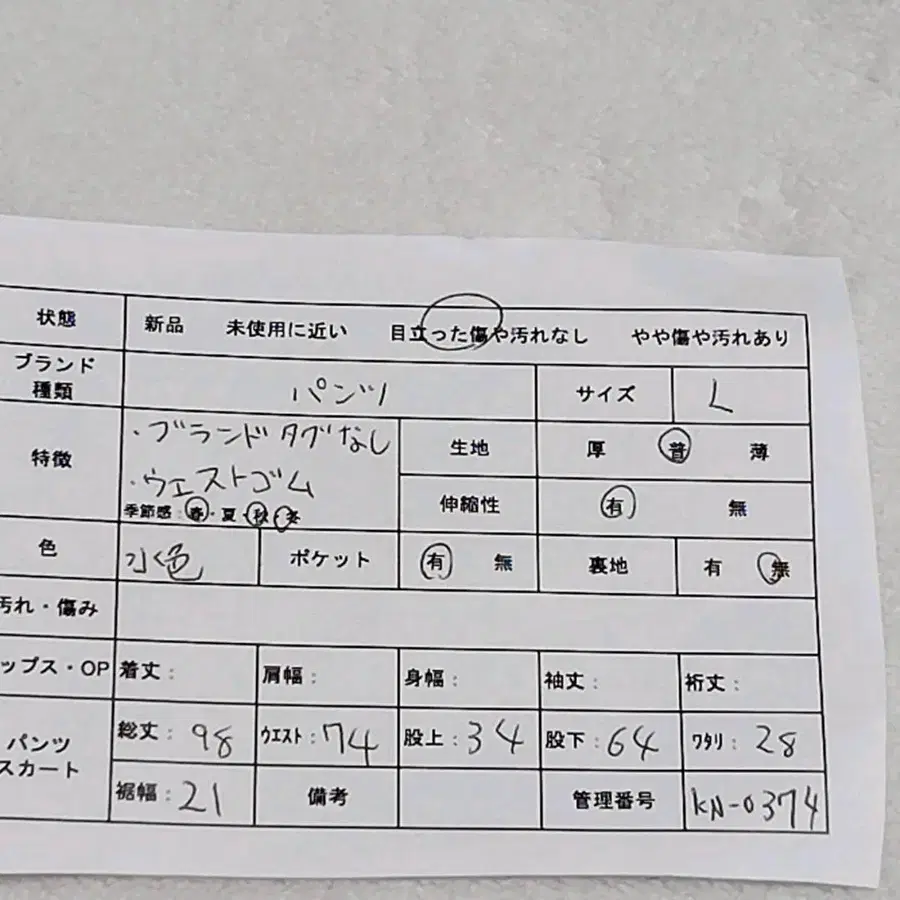 状態 新品 未使用に近い 目立った傷や汚れなし やや傷や汚れあり
ブランド
種類 パンツ サイズ L
特徴 ・ブランドタグなし
・ウェストゴム
季節感:春・夏・秋・冬
生地 厚 普 薄
伸縮性 有 無
色 水色 ポケット 有 無 裏地 有 無
汚れ・傷み
ップス・OP 着丈: 肩幅: 身幅: 袖丈: 裄丈:
パンツ
スカート
総丈:98 ウエスト:74 股上:34 股下:64 ワタリ:28
裾幅:21 備考 管理番号 KN-0374